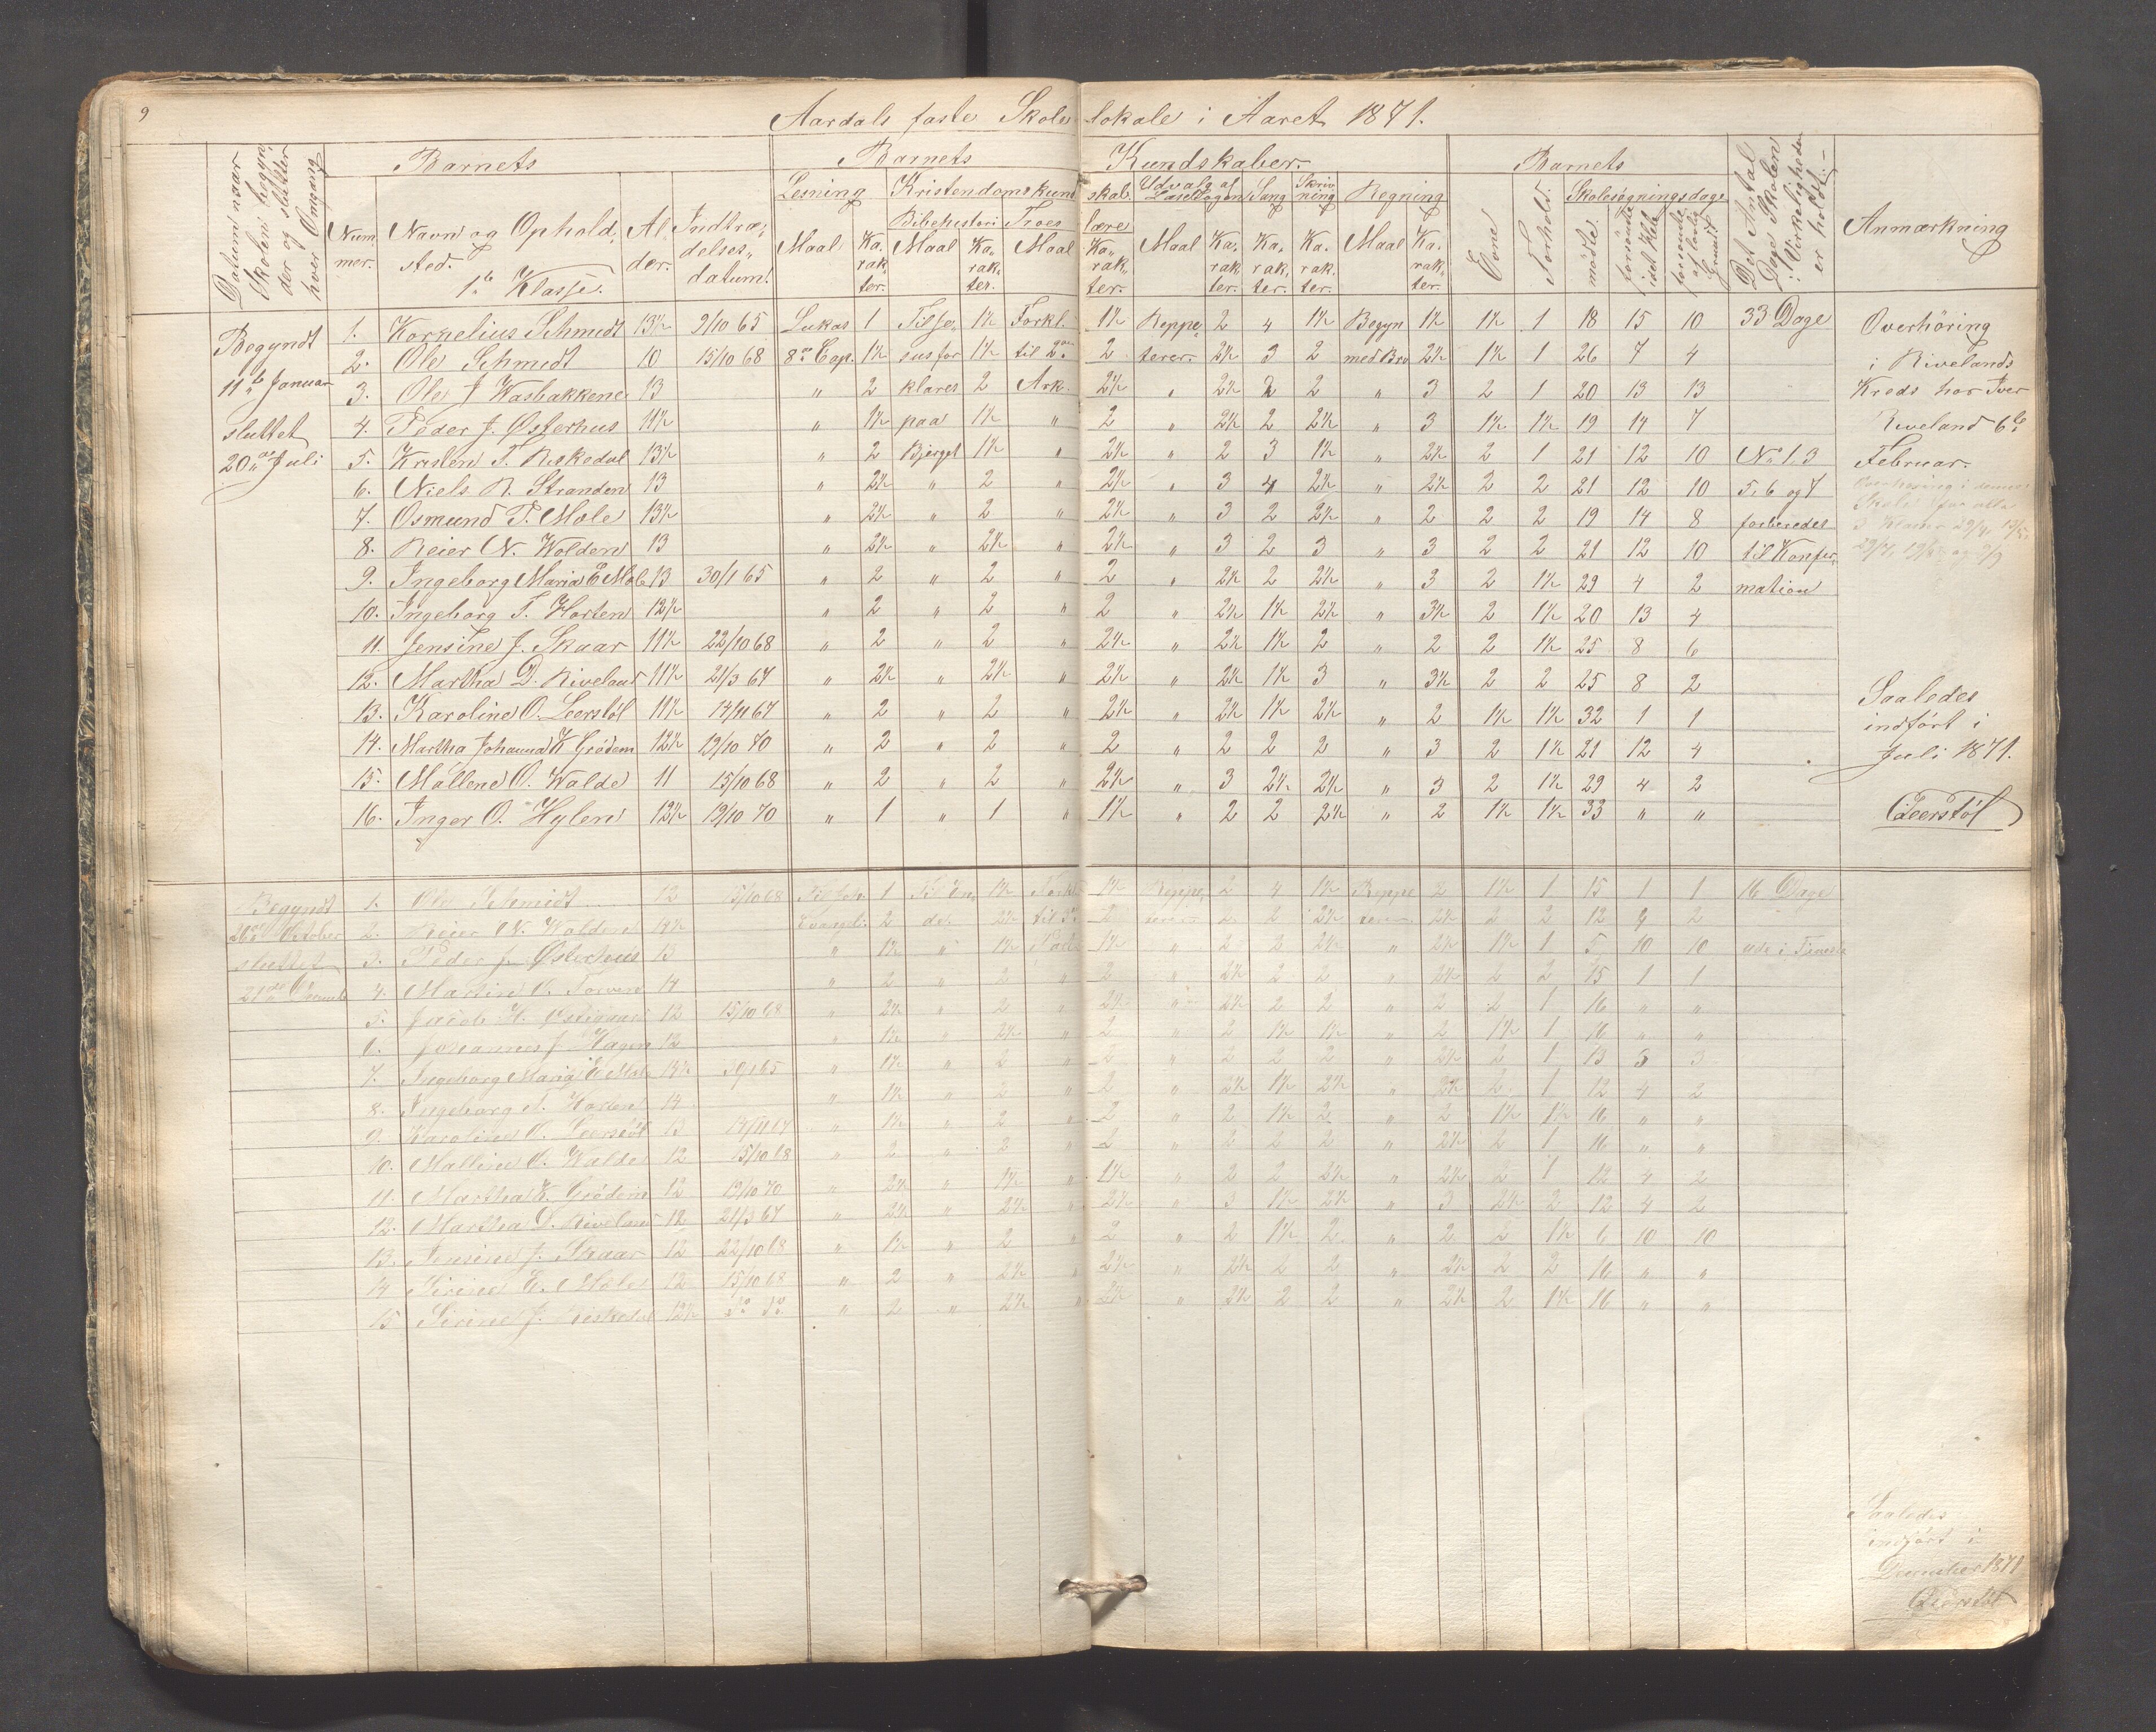 9
Aardals faste Skolelokale i Aaret 1871.
Datum naar Skolen begynder og slutter hver Omgang
Barnets
Barnets
Kundskaber.
Barnets
Det Antal Dage Skolen i Virkeligheden er holdt.
Anmærkning
Nummer.
Navn og Opholdssted.
1ste Klasse.
Alder.
Indtrædelsesdatum.
Læsning
Maal
Karakter.
Kristendomskundskab.
Bibelhistorie
Maal
Karakter.
Troeslære
Maal
Karakter.
Udvalg af Læsebogen
Maal
Karakter.
Sang
Karakter.
Skrivning
Karakter.
Regning
Maal
Karakter.
Evne
Forhold.
Skolesøgningsdage
mødte
forsømte i det Hele
forsømte af lovlig Grund
Begyndt
11te Januar
sluttet
20de Juli
1. Kornelius Schmidt 13½ 9/10 65 Lukas 1 Til Je 1½ Forkl. 1½ Reppe 2 4 1½ Begyn 1½ 1½ 1 18 15 10 33 Dage
2. Ole Schmidt 10 15/10 68 8de Cap. 1½ sus for 1½ til 2den 2 terer. 2½ 3 2 med Brø 2½ 1½ 1 26 7 4
3. Ole J Wasbakkene 13 " 2 klares 2 Ark. 2½ " 2½ 2 2 " 3 2 1 20 13 13
4. Peder J. Østerhus 11½ " 1½ paa 1½ " 2 " 2½ 2 2½ " 3 1½ 1½ 19 14 7
5. Kristen T. Riskedal 13½ " 2 Bjerget 1½ " 2½ " 2 3 1½ " 2½ 2 1 21 12 10 No 1. 3
6. Niels R. Stranden 13 " 2½ " 2 " 2½ " 3 4 2½ " 2½ 2 2 21 12 10 5, 6 og 7
7. Osmund T. Mole 13½ " 2½ " 2 " 2½ " 3 2 2½ " 2 2 2 19 14 8 forberedes
8. Reier N. Wolden 13 " 2½ " 2½ " 2½ " 3 2 3 " 3 2 2 21 12 10 til Konfir
9. Ingeborg Maria E Mole 13 30/1 65 " 2 " 2 " 2 " 2½ 2 2½ " 3 2 1½ 29 4 2 mation
10. Ingeborg T. Horten 12½ " 2 " 2 " 2 " 2½ 1½ 2½ " 3½ 2 1½ 20 13 4
11. Jensine J. Skaar 11½ 22/10 68 " 2 " 2 " 2½ " 2½ 1½ 2 " 2 2 1½ 25 8 6
12. Martha D. Riveland 11½ 21/3 67 " 2½ " 2½ " 2½ " 2½ 1½ 3 " 3½ 2 2 25 8 2
13. Karoline O. Leerstøl 11½ 14/11 67 " 2 " 2 " 2½ " 2½ 1½ 2½ " 2 1½ 1½ 32 1 1
14. Martha Johanna K Grødem 12½ 19/10 70 " 2 " 2 " 2 " 2 2 2 " 3 2 1½ 21 12 4
15. Mallene O. Walde 11 15/10 68 " 2 " 2 " 2½ " 3 2½ 2½ " 3 2 1½ 29 4 2
16. Inger O. Hylen 12½ 19/10 70 " 1 " 1 " 1½ " 2 2 2½ " 2 1½ 1½ 33 " "
Overhöring
i Rivelands
Kreds hos Iver
Riveland 6te
Februar.
Saaledes
indført i
Juli 1871.
Leerstøl
Begyndt
26de October
sluttet
21de
1. Ole Schmidt 12 15/10 68 1 1½ 1½ Reppe 2 4 1½ Reppe 2 1½ 1 15 1 1 16 Dage
2. Reier N. Wolden 13½ Evangeli 2 2½ 2 2 2 2½ 2½ 2 2 12 4 2
3. Peder J. Østerhus 13 " 1½ " 1½ 1½ " 2 2 2½ " 2½ 1½ 1 5 10 10
4. Martin 14 " 2 " 2 " 2 " 2½ 2 2 " 2½ 2 2 15 1 1
5. Jacob H. 12 15/10 68 " 2½ " 2 " 2½ " 2½ 2 2 " 2 2 1 16 " "
6. Johannes J Hagen 12 " 1½ " 2½ " 2 " 2 1½ 1½ " 2 1½ 1 16 " "
7. Ingeborg Maria E Mole 13½ 30/1 65 " 1½ " 2 " 2 " 2 2 2 " 2½ 2 1 13 3 3
8. Ingeborg T. Horten 14 " 1½ " 2 " 2 " 2½ 1½ 2½ " 2½ 2 1 12 4 2
9. Karoline O. Leerstøl 13 14/11 67 " 1½ " 2 " 2 " 2 1½ 2 " 2 1½ 1½ 16 " "
10. Malline O. Walde 12 15/10 68 " 2 " 2 " 2 " 2 2 2 " 2½ 2 1 16 " "
11. Martha K. Grødem 12 19/10 70 " 2½ " 1½ " 1½ " 2 2 2½ " 2½ 2 1 12 4 2
12. Martha D. Riveland 12 21/3 67 " 2½ " 2½ " 2½ " 3 1½ 2½ " 3 2½ 2 12 4 2
13. Jensine J. Skaar 12 22/10 68 " 1½ " 2 " 2 " 2 1½ 2 " 2 2 1½ 6 10 10
14 Sirine E. Mole 12 15/10 68 " 2 " 2½ " 2½ " 2½ 2 2 " 2½ 2 2 16 " "
15 Sirine J. Riskedal 12½ " 2 " 2½ " 2½ " 2½ 2 2 " 2½ 2 1½ 16 " "
Saaledes
indført i
December 1871
Leerstøl